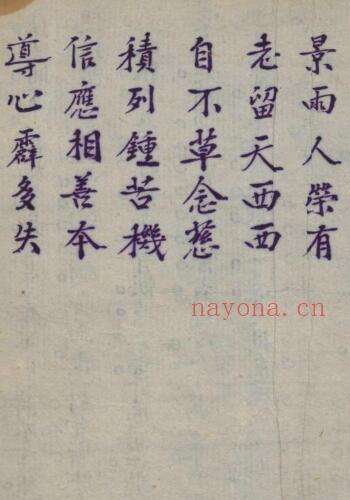 景雨人榮有
老留天西西
自不草念慈
積列鍾苦機
信應相善本
導心霹多失
nayona.cn